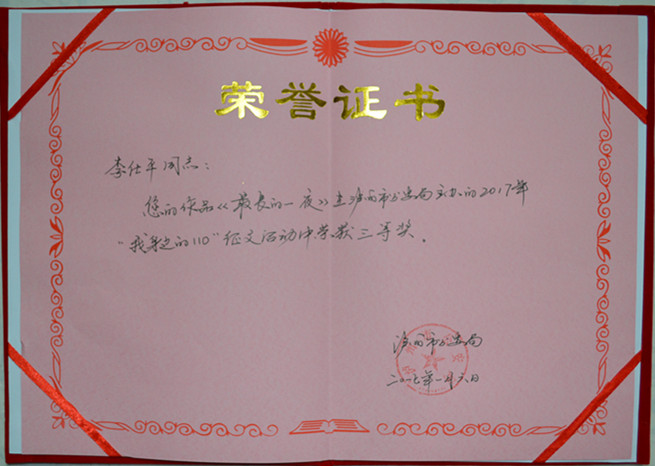 荣誉证书
李仕平同志：
您的作品《最长的一夜》在市公安局主办的2017年
“我身边的110”征文活动中荣获三等奖。
市公安局
二〇一七年一月六日